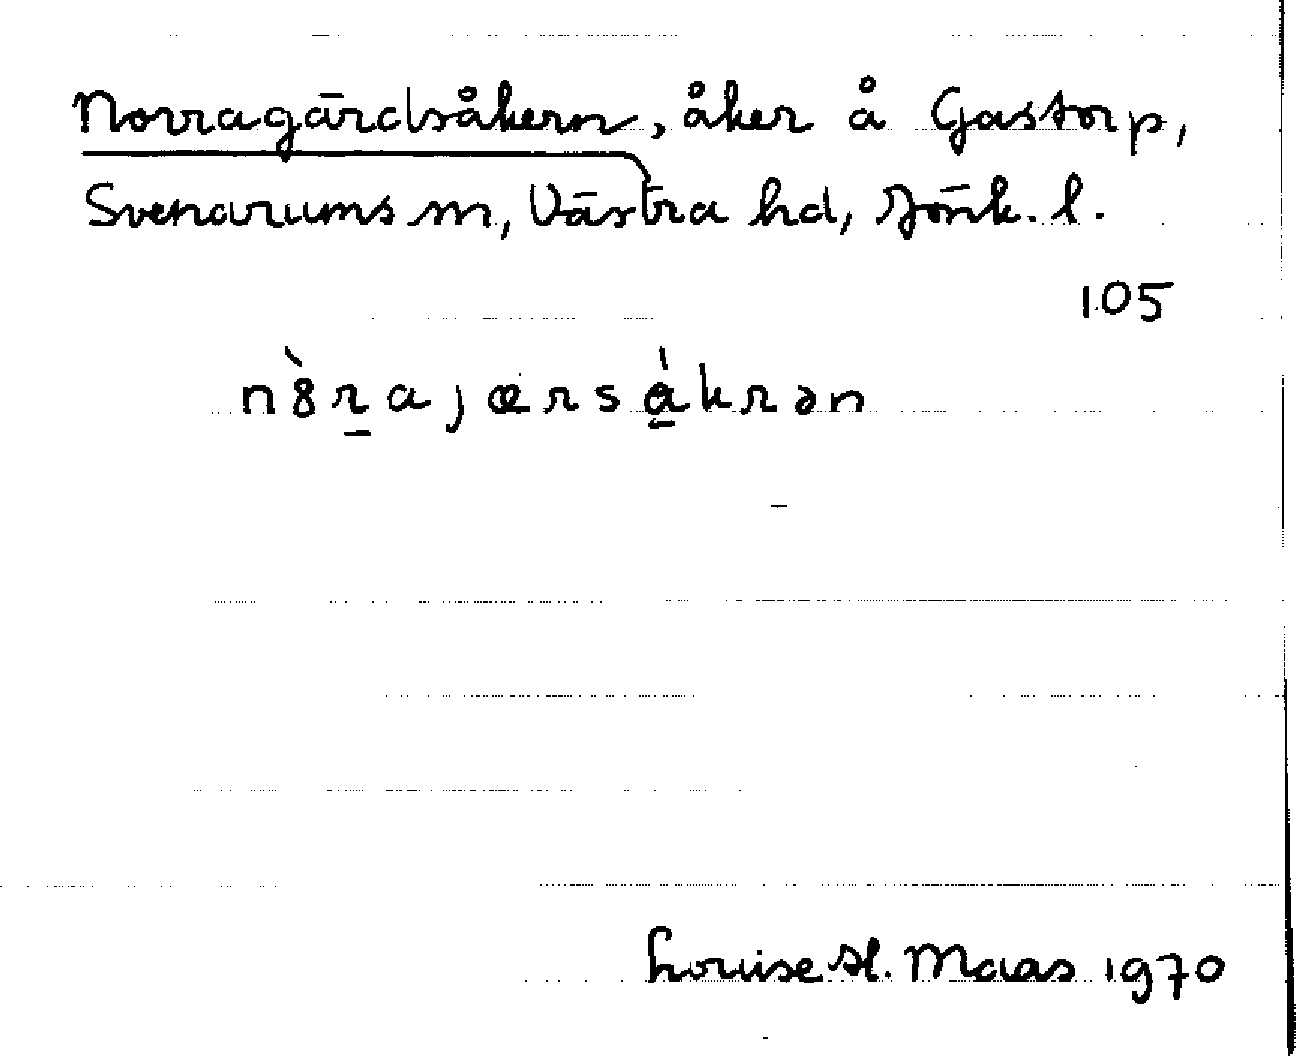 Norragärdsåkern, åker å Gastorp,
Svenarums sn, Västra hd, Jönk. l.
105
n8̀ra̱jærså̱̀krən
Louise H. Maas 1970